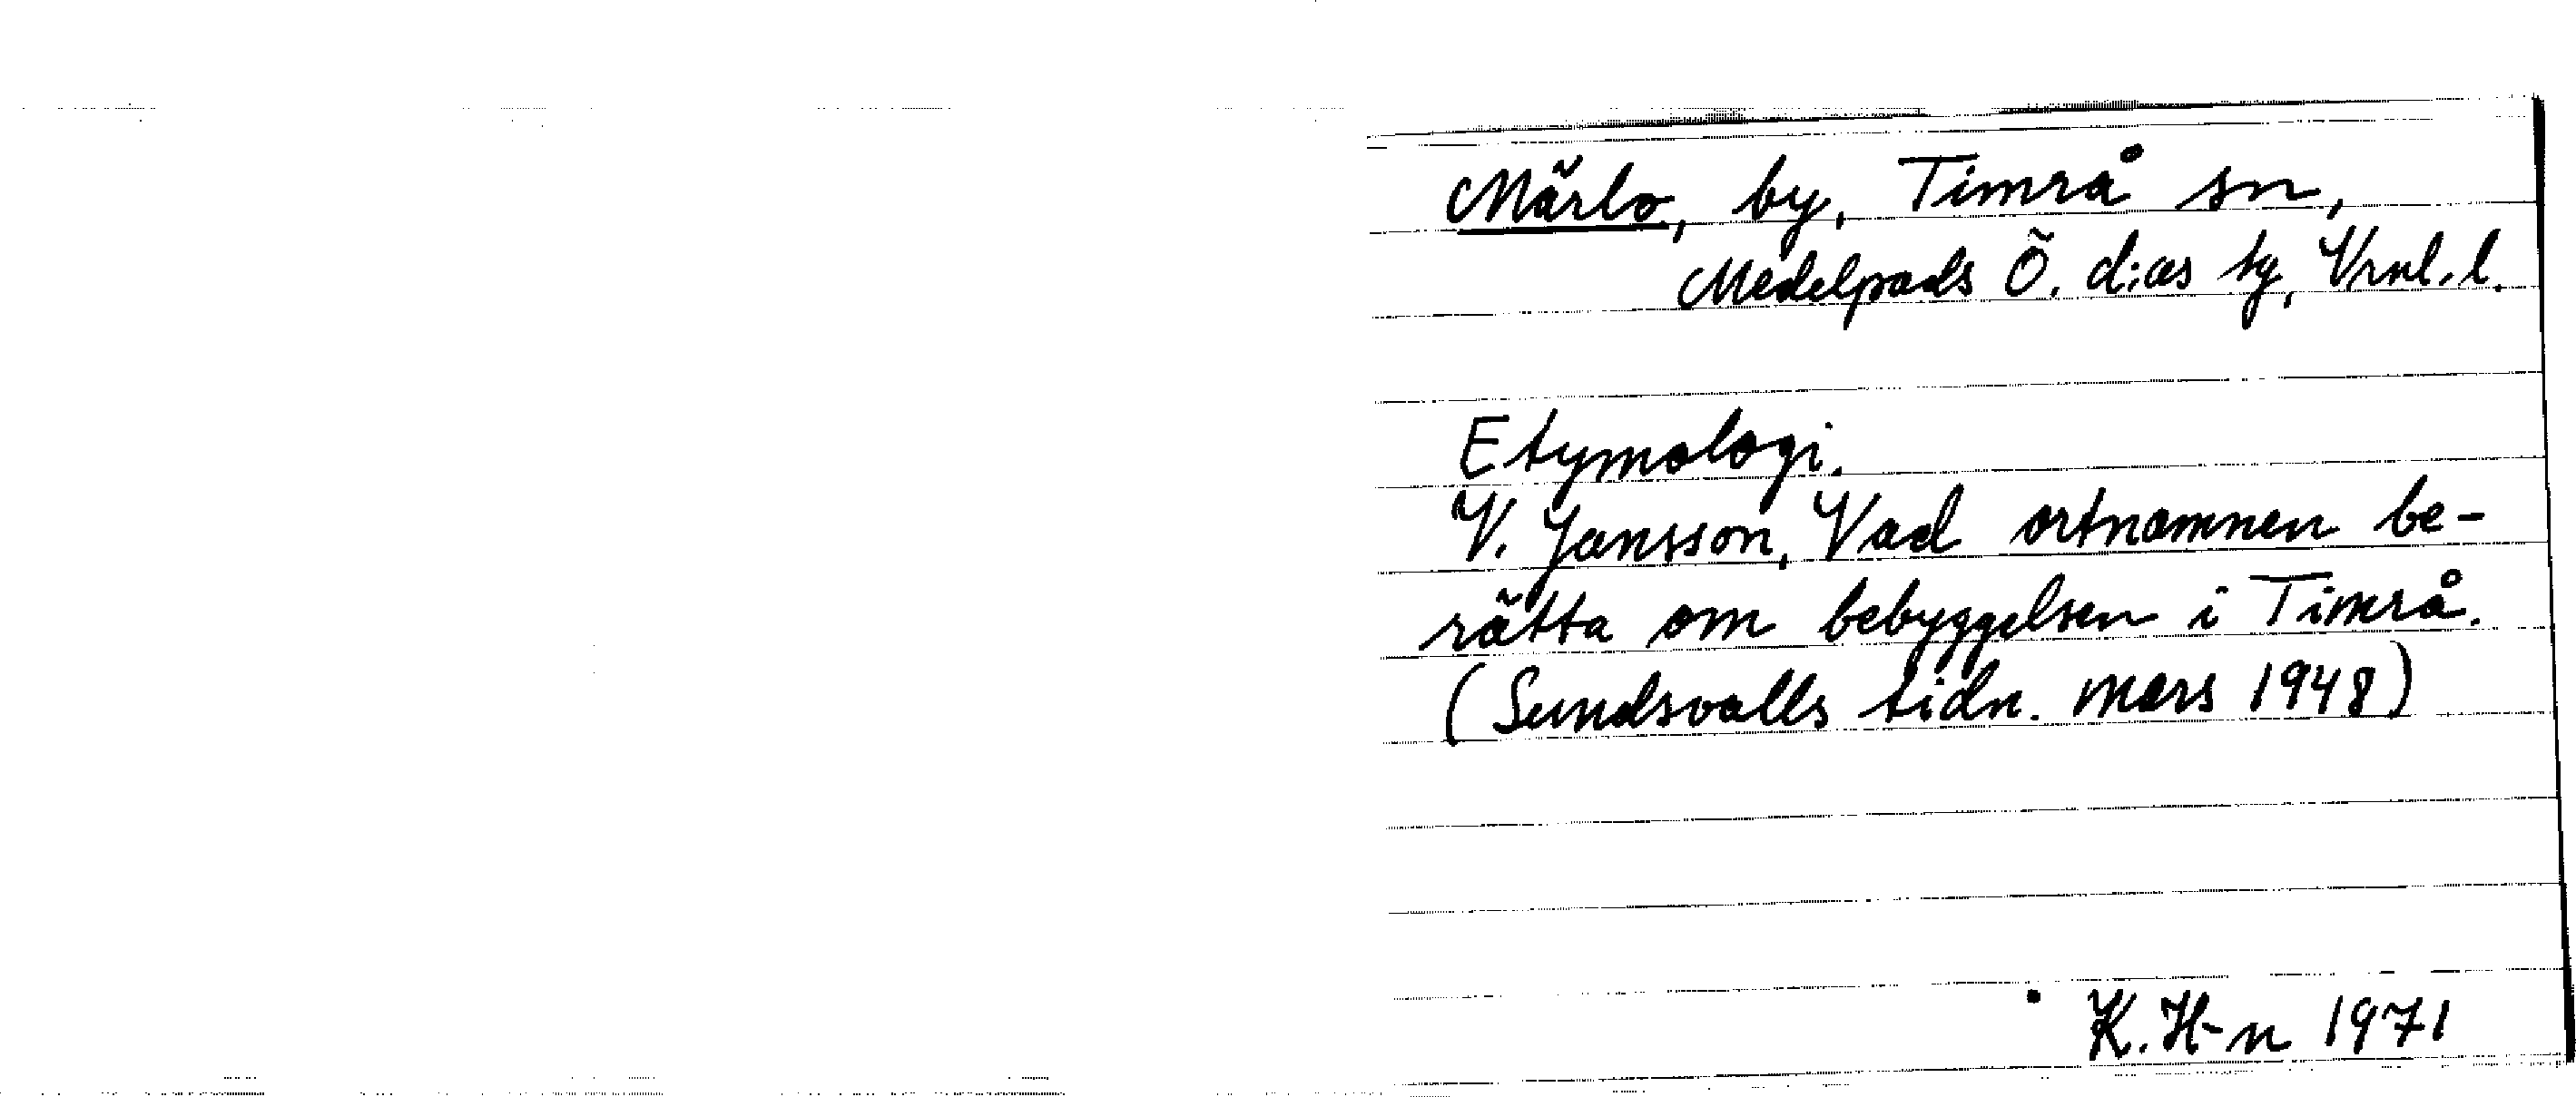 Märlo, by, Timrå sn,
Medelpads Ö. d:as tg, Vrnl. l.
Etymologi.
V. Jansson, Vad ortnamnen be-
rätta om bebyggelsen i Timrå.
(Sundsvalls tidn. mars 1948)
K. H-n 1971